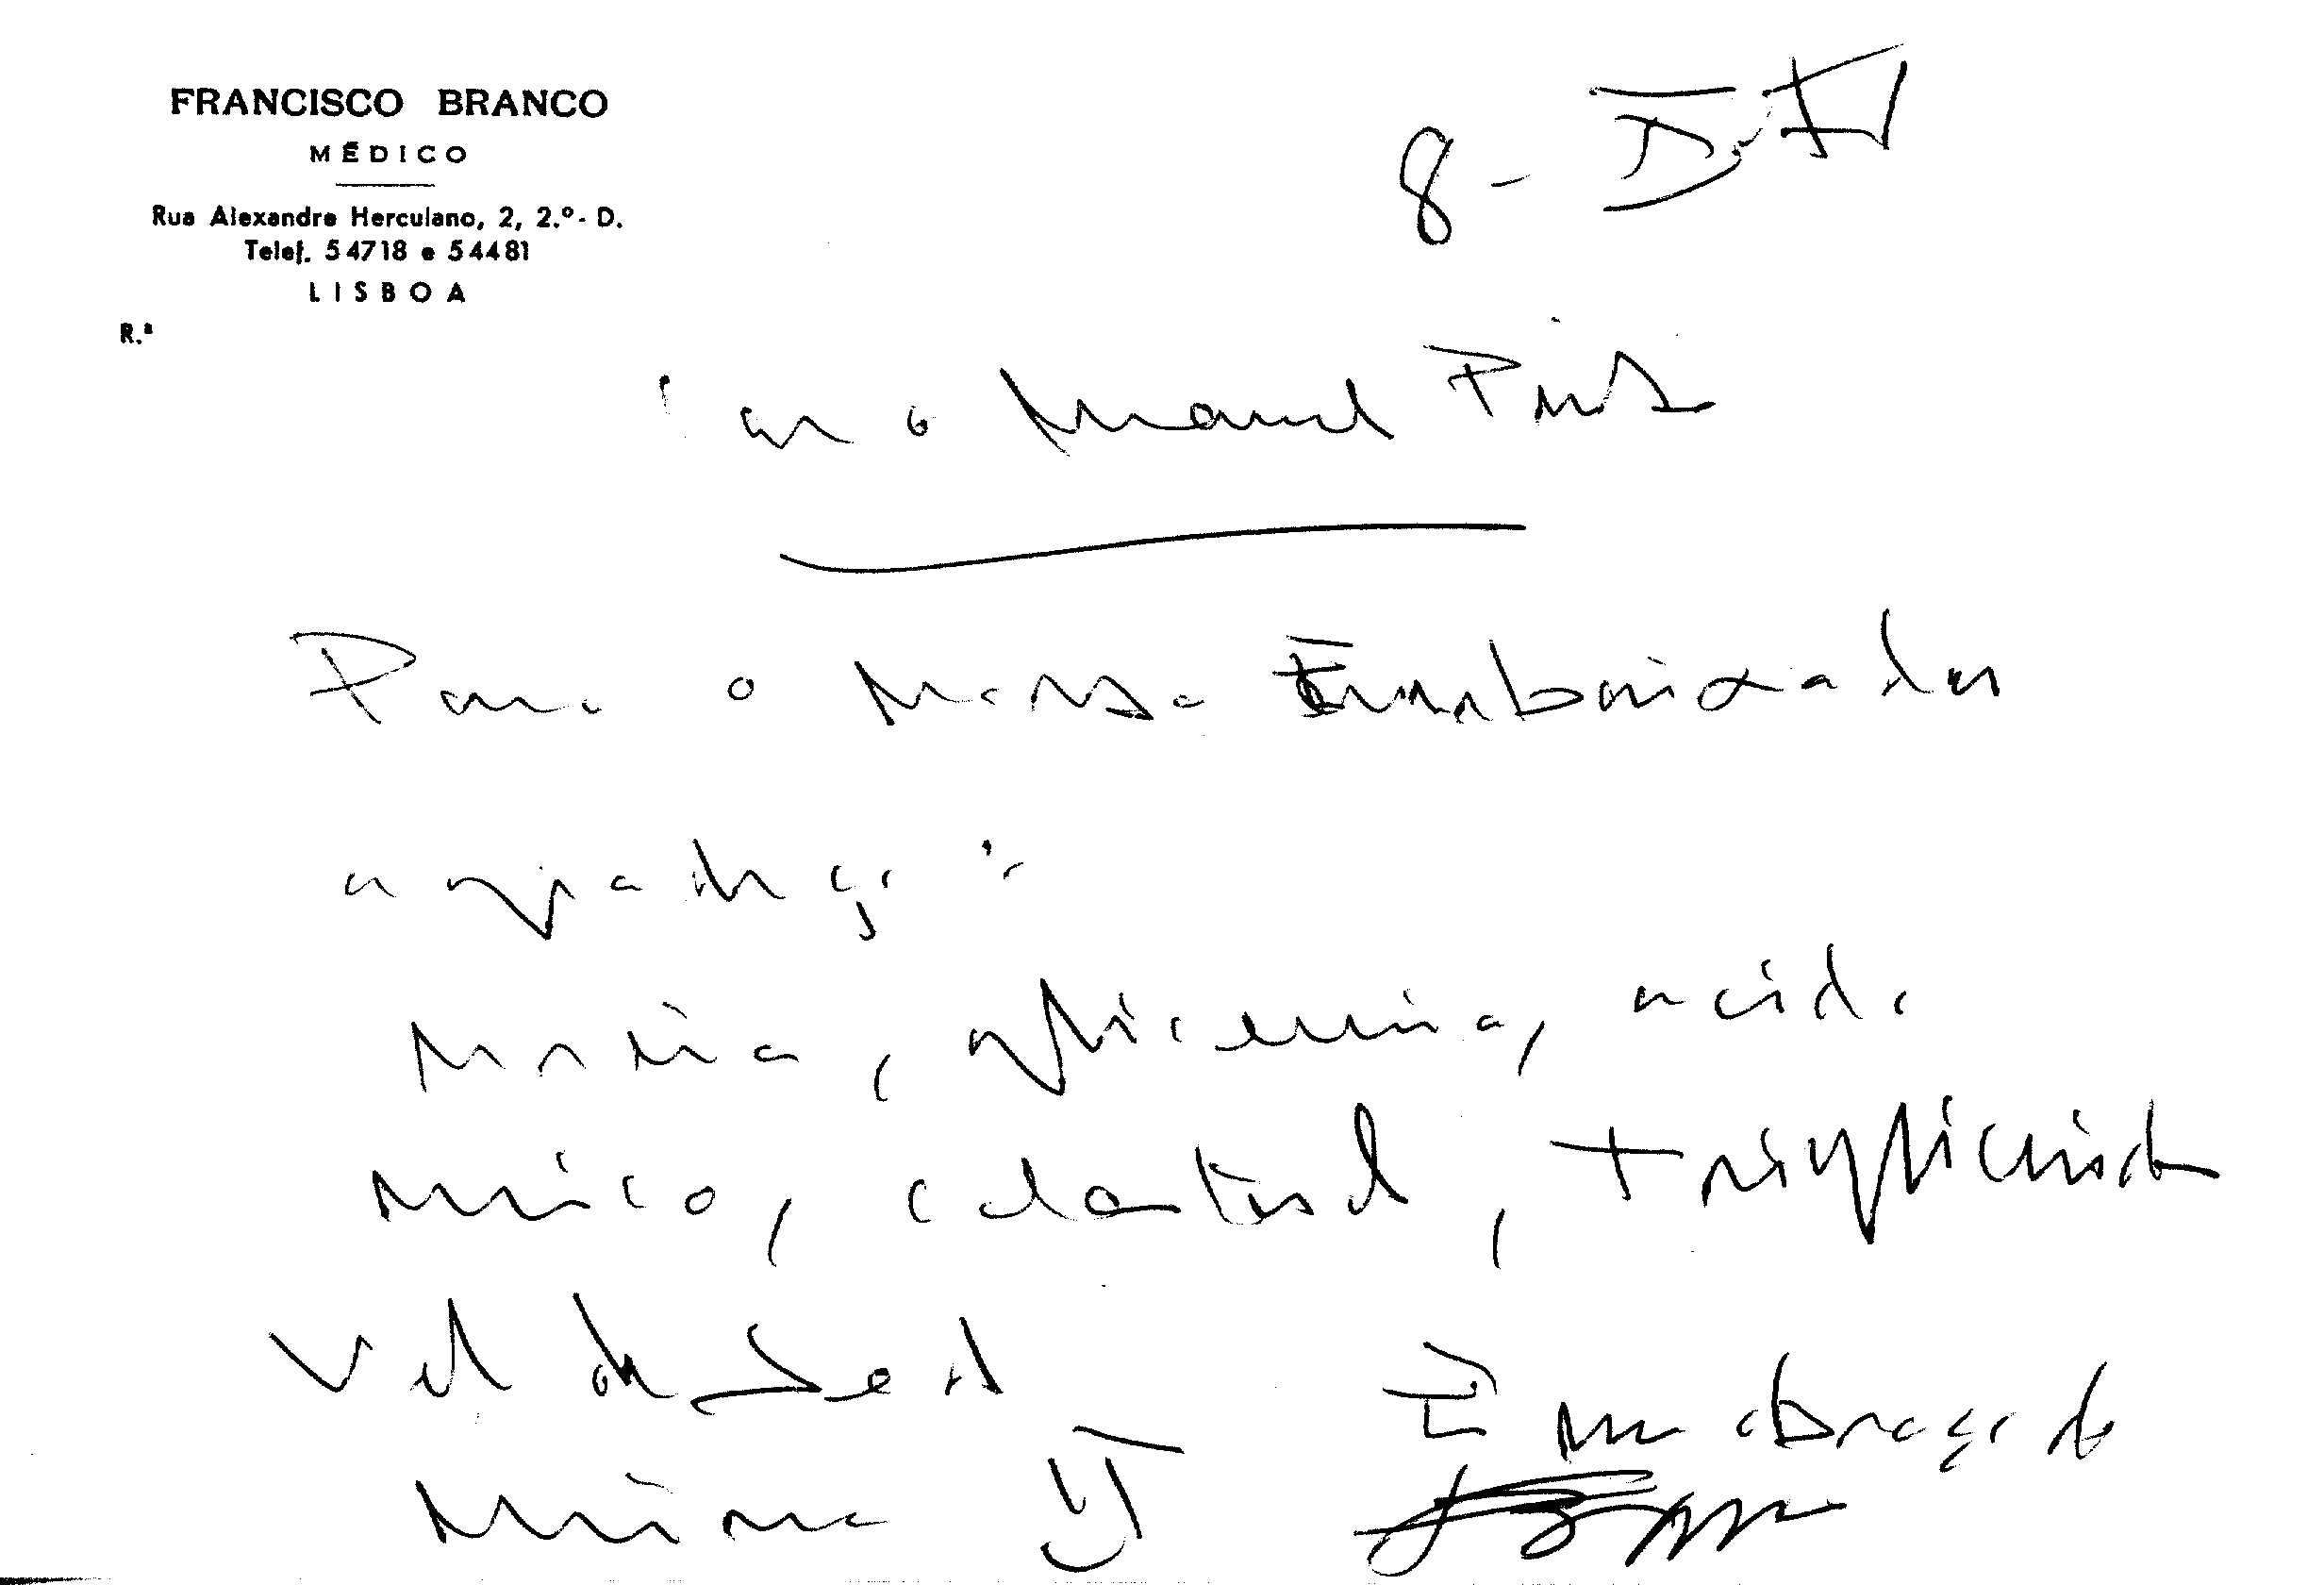 FRANCISCO BRANCO
MÉDICO
Rua Alexandre Herculano, 2, 2.º - D.
Telef. 54718 e 54481
LISBOA
8 -
R.ª
Caro Manuel
Para o nosso Embaixador
agradeço
ureia, glicemia, acido
urico, colesterol, trigliceride
Vel de Sed
urina II
E um abraço do